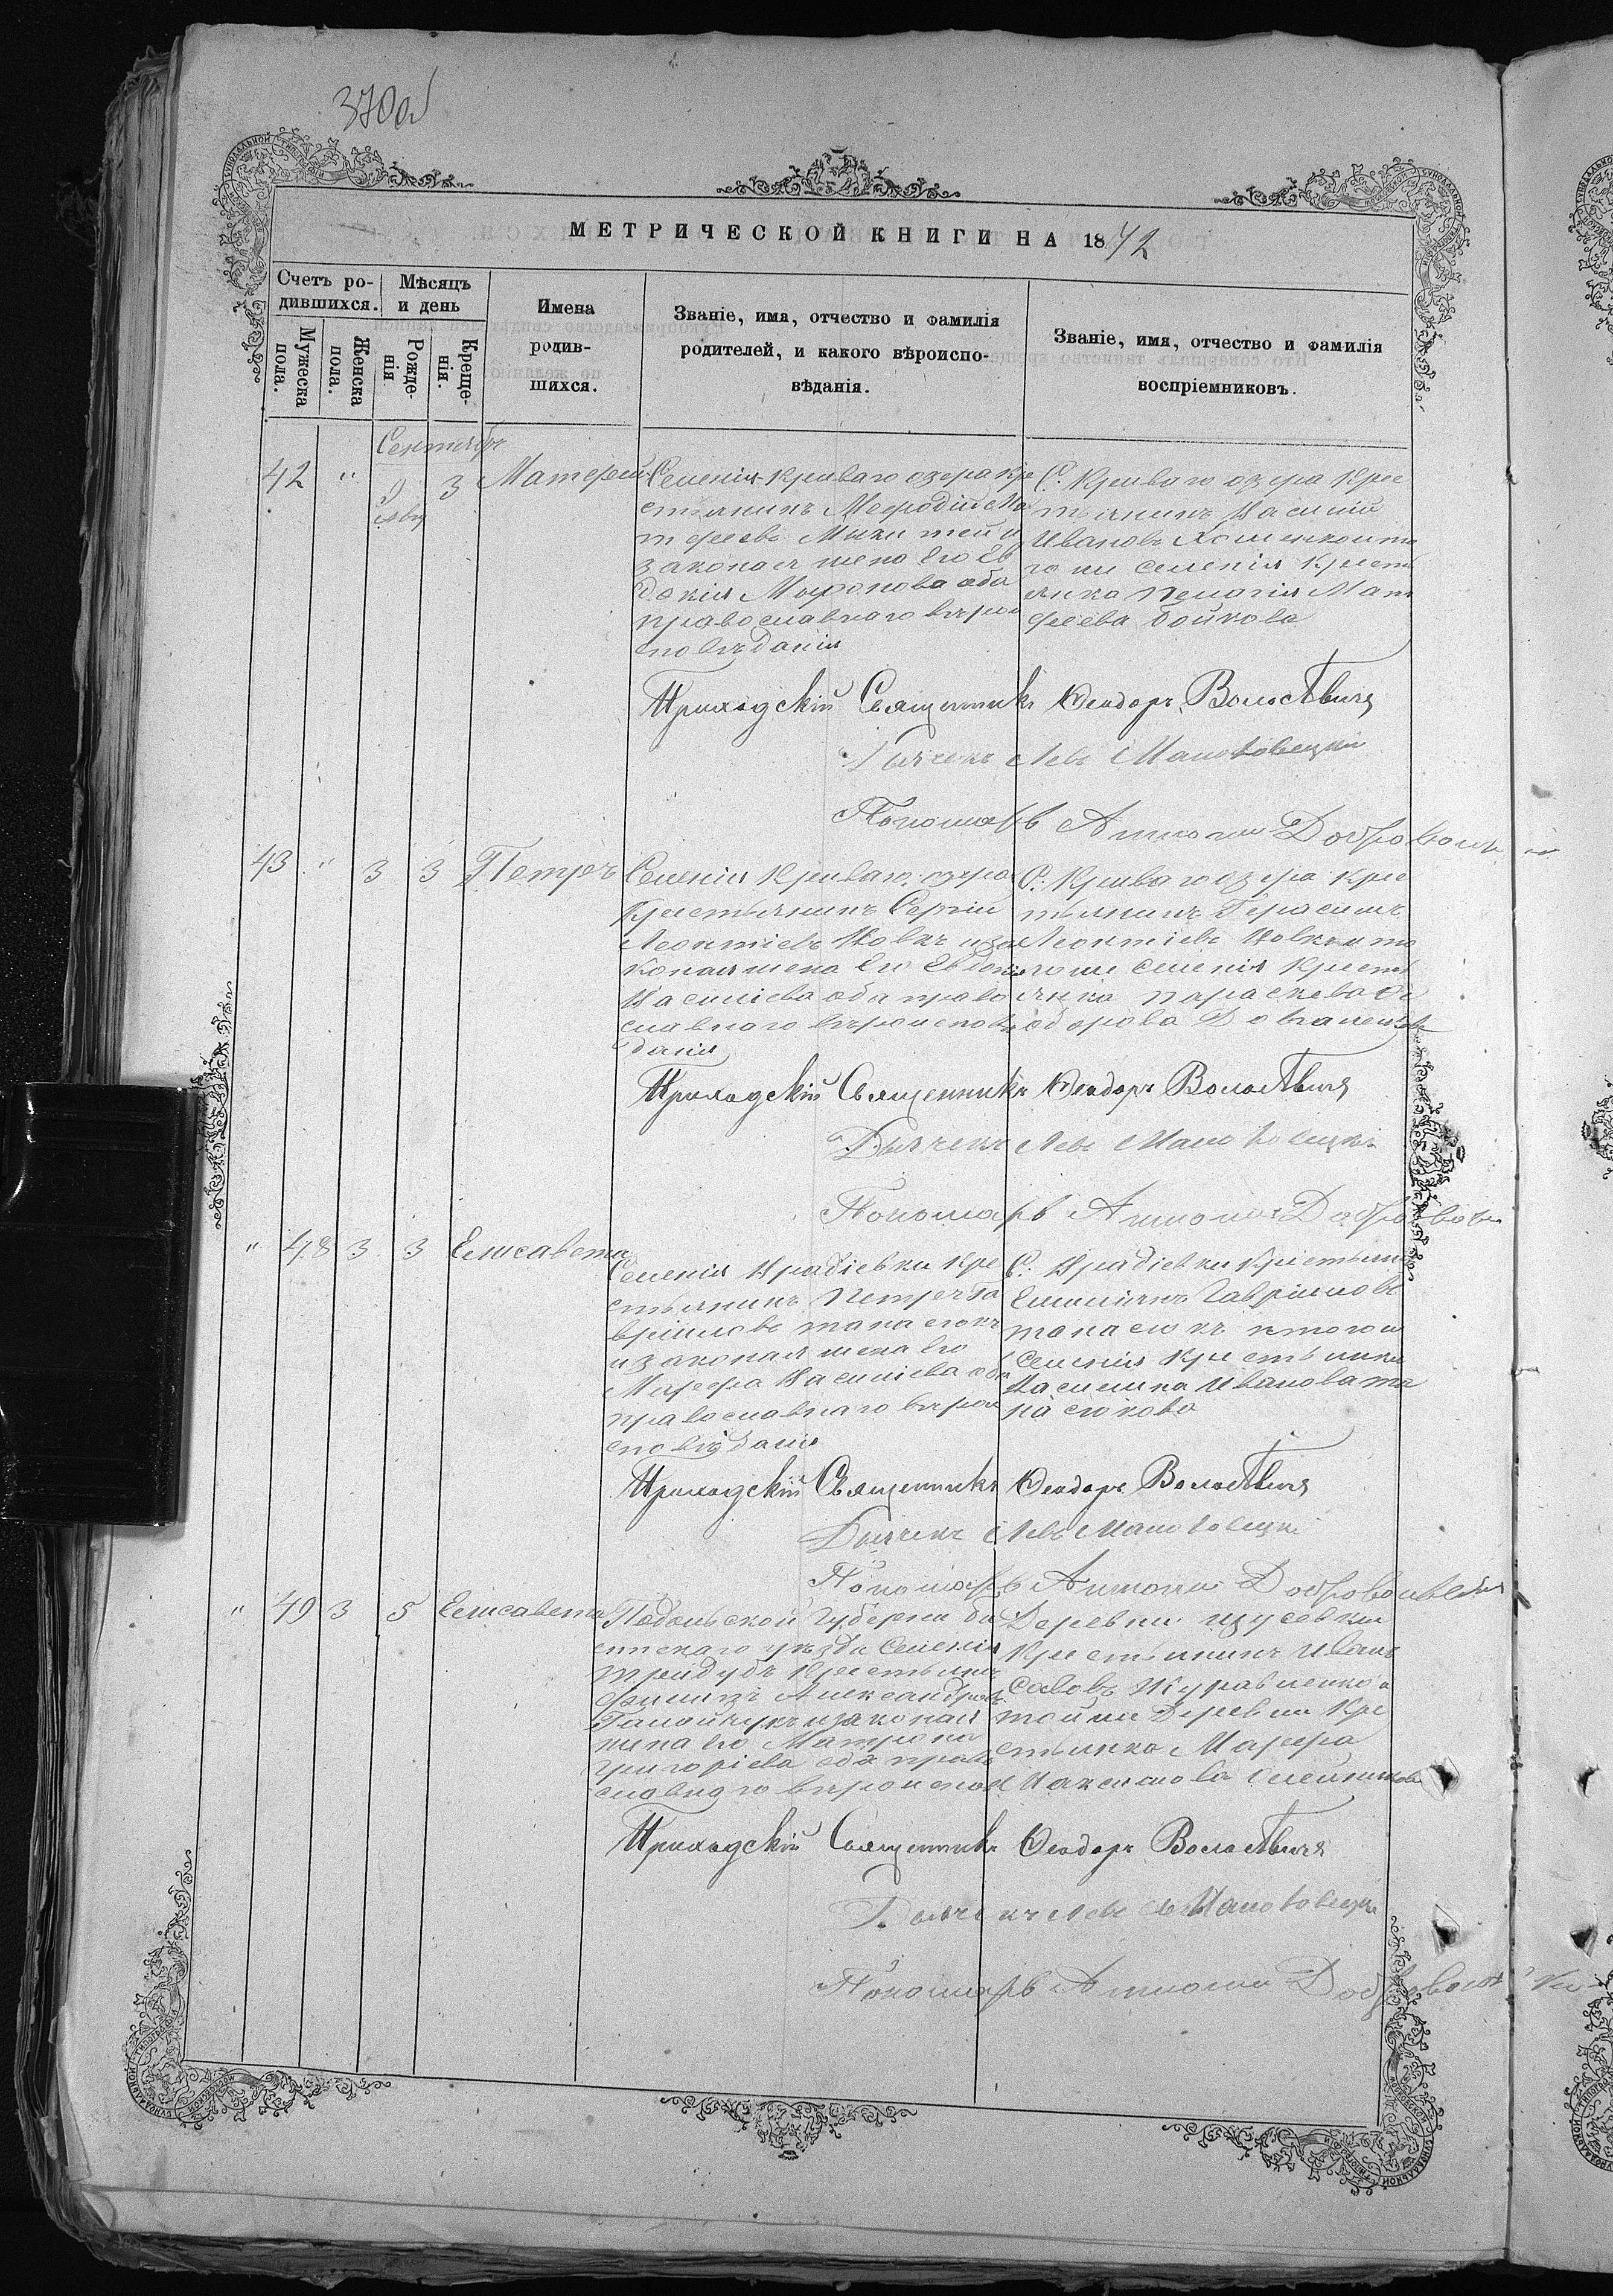 370об
МЕТРИЧЕСКОЙ КНИГИ НА 1872
Счетъ ро-
дившихся.
Мѣсяцъ
и день
Мужеска
пола.
Женска
пола.
Рожде-
нія
Креще-
нія.
Имена
родив-
шихся.
Званіе, имя, отчество и фамилія
родителей, и какого вѣроиспо-
вѣданія.
Званіе, имя, отчество и фамилія
воспріемниковъ.
Сентябр
42 " 3 Матфей
Селенія Криваго озера кре
стьянинъ Мефодій Ма
тфеевъ
законая жена его Ев
докія Миронова оба
православнаго вѣрои
сповѣданія
С. Криваго озера кре
стьянинъ Василій
Ивановъ
го же селенія крест
янка Пелагія Мат
феева Бойкова
Приходскій Священникъ Феодоръ
Дьячекъ Левъ
Пономарь Антоній
43 " 3 3 Петръ
Селенія Криваго озера
Крестьянинъ Сергій
Леонтіевъ Вовкъ и за
коная жена его Евдокія
Василіева оба право
славнаго вѣроисповѣ
данія
С. Криваго озера кре
стьянинъ Герасимъ
Леонтіевъ Вовкъ и то
го же селенія крест
янка Параскева Ѳе
одорова
Приходскій Священникъ Феодоръ
Дьячекъ Левъ
Пономарь Антоній
" 48 3 3 Елисавета
Селенія Врадіевки кре
стьянинъ Петръ Га
вріиловъ Танасюкъ
и законая жена его
Марфа Василіева оба
православнаго вѣрои
сповѣданія
С. Врадіевки крестьян
Емиліянъ Гавріиловъ
Танасюкъ и того ж
селенія крестьянка
Василина Иванова Та
насюкова
Приходскій Священникъ Феодоръ
Дьячекъ Левъ
Пономарь Антоній
" 49 3 5 Елисавета
Подольской Губерніи Ба
лтскаго уѣзда Селенія
Тридубъ Крестьянин
Филипъ Александров
и законая
жена его Матрона
Григоріева оба право
славнаго вѣроиспов
Деревни
Крестьянинъ Иванъ
Савовъ Журавленко и
той же Деревни Кре
стьянка Марфа
Максимова
Приходскій Священникъ Феодоръ
Дьячекъ Левъ
Пономарь Антоній